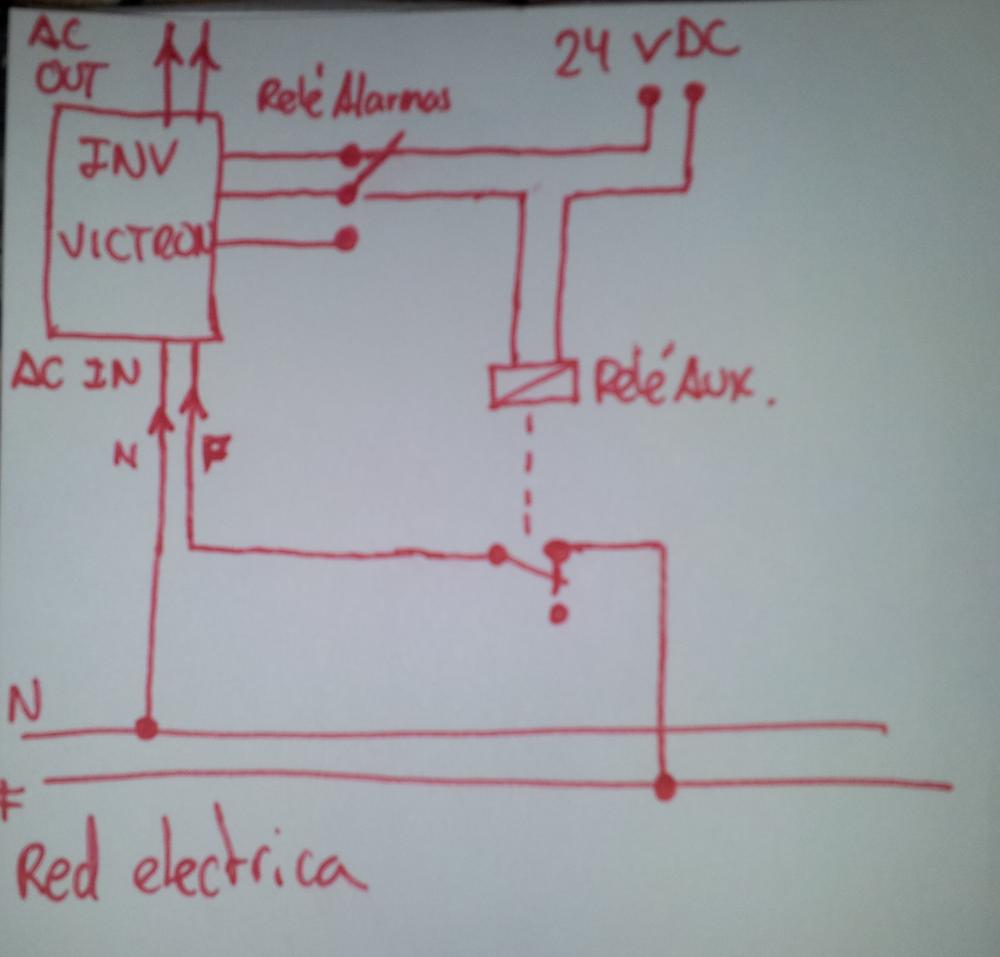 AC
OUT
24 VDC
Relé Alarmas
INV
VICTRON
AC IN
Relé Aux.
N
F
N
F
Red electrica